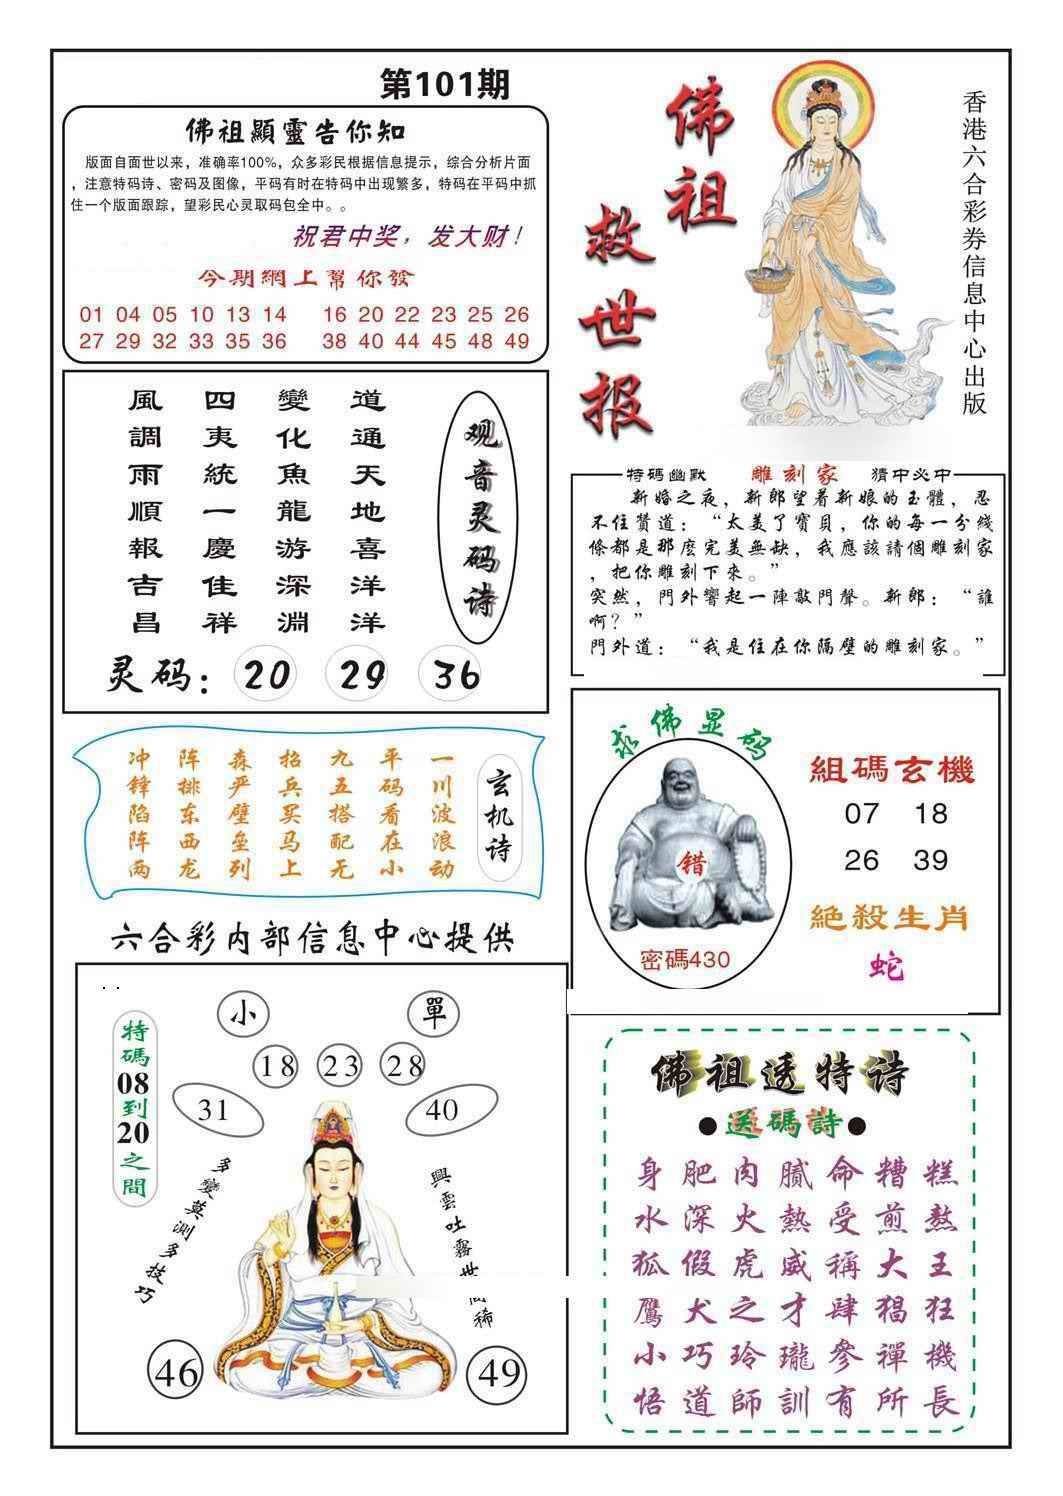 第101期
佛祖顯靈告你知
版面自面世以来，准确率100%，众多彩民根据信息提示，综合分析片面
，注意特码诗、密码及图像，平码有时在特码中出现繁多，特码在平码中抓
住一个版面跟踪，望彩民心灵取码包全中。。
祝君中奖，发大财！
今期網上幫你發
01 04 05 10 13 14 16 20 22 23 25 26
27 29 32 33 35 36 38 40 44 45 48 49
佛祖
救世报
香港六合彩券信息中心出版
观音灵码诗
道通天地喜洋洋
變化魚龍游深淵
四夷統一慶佳祥
風調雨順報吉昌
灵码：20 29 36
特碼幽默 雕刻家 猜中必中
新婚之夜，新郎望着新娘的玉體，忍
不住贊道：“太美了寶貝，你的每一分綫
條都是那麼完美無缺，我應該請個雕刻家
，把你雕刻下來。”
突然，門外響起一陣敲門聲。新郎：“誰
啊？”
門外道：“我是住在你隔壁的雕刻家。”
玄机诗
一川波浪动
平码看在小
九五搭配无
招兵买马上
森严壁垒列
阵排东西龙
冲锋陷阵两
求佛显码
错
密碼430
組碼玄機
07 18
26 39
絕殺生肖
蛇
六合彩内部信息中心提供
特碼08到20之間
小 單
18 23 28
31 40
多變莫測多技巧
興雲吐霧世稀
46 49
佛祖透特诗
●送碼詩●
身肥肉膩命糟糕
水深火熱受煎熬
狐假虎威稱大王
鷹犬之才肆猖狂
小巧玲瓏參禪機
悟道師訓有所長